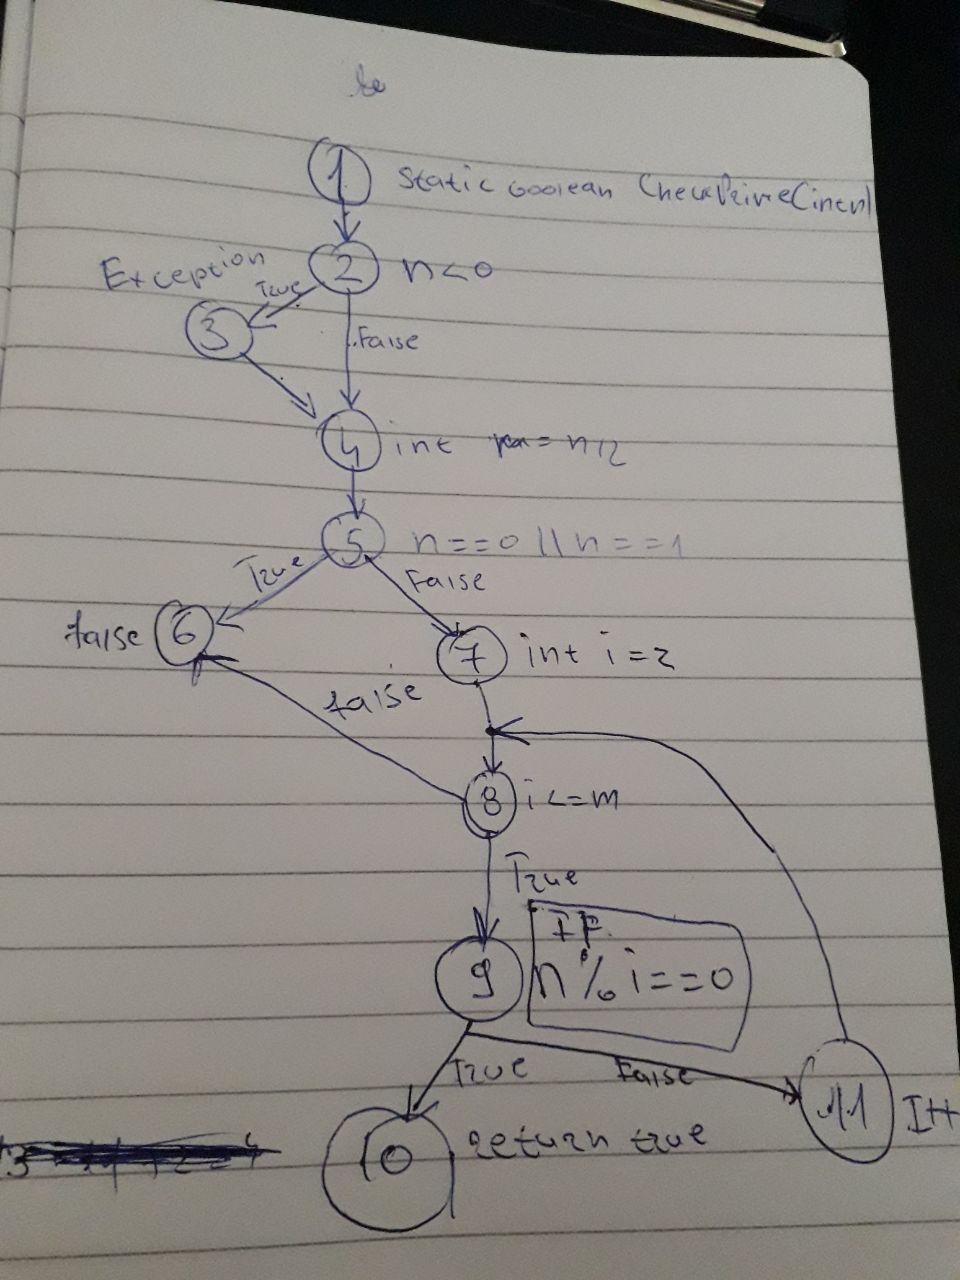 1 Static boolean CheckPrime(int n)
2 n<0
Exception
True
3
False
4 int m = n/2
5 n==0 || n==1
True
False
false 6
7 int i=2
false
8 i<=m
True
IF
9 n%i==0
True
False
11 I++
10 return true